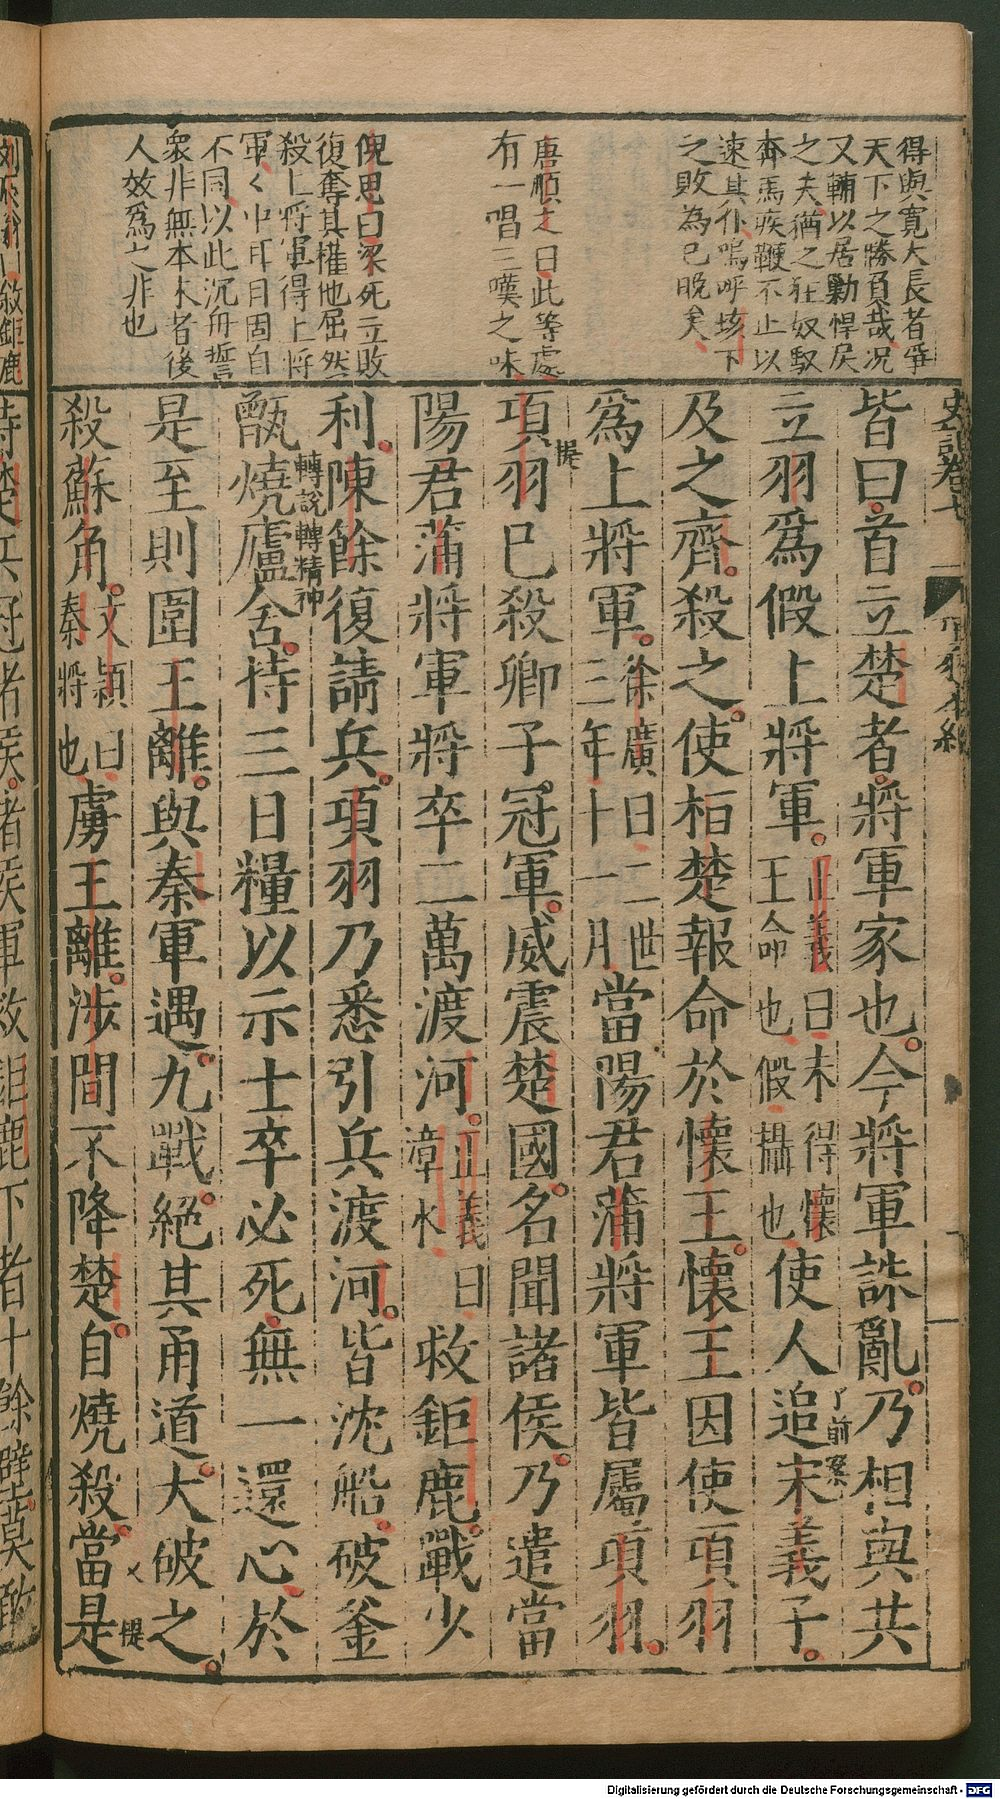 得與寬大長者爭
天下之勝負哉况
又輔以居勦悍戾
之夫猶之狂奴馭
奔馬疾鞭不止以
速其仆嗚呼垓下
之敗為已晚矣
唐順之曰此等處
有一唱三嘆之味
倪思曰梁死立敗
復奪其權他屈然
殺上將軍得上將
軍〻中耳目固自
不同以此沉舟誓
衆非無本末者後
人效爲之非也
史記卷七
皆曰首立楚者將軍家也今將軍誅亂乃相與共
立羽爲假上將軍正義曰未得懷王命也假攝也使人追宋義子
了前案
及之齊殺之使桓楚報命於懷王懷王因使項羽
爲上將軍徐廣曰二世三年十一月當陽君蒲將軍皆屬項羽
提
項羽已殺卿子冠軍威震楚國名聞諸侯乃遣當
陽君蒲將軍將卒二萬渡河正義曰漳水救鉅鹿戰少
利陳餘復請兵項羽乃悉引兵渡河皆沈船破釜
轉說轉精神
甑燒廬舍持三日糧以示士卒必死無一還心於
是至則圍王離與秦軍遇九戰絕其甬道大破之
提
殺蘇角文穎曰秦將也虜王離涉間不降楚自燒殺當是
時楚兵冠諸侯諸侯軍救鉅鹿下者十餘壁莫敢
Digitalisierung gefördert durch die Deutsche Forschungsgemeinschaft - DFG